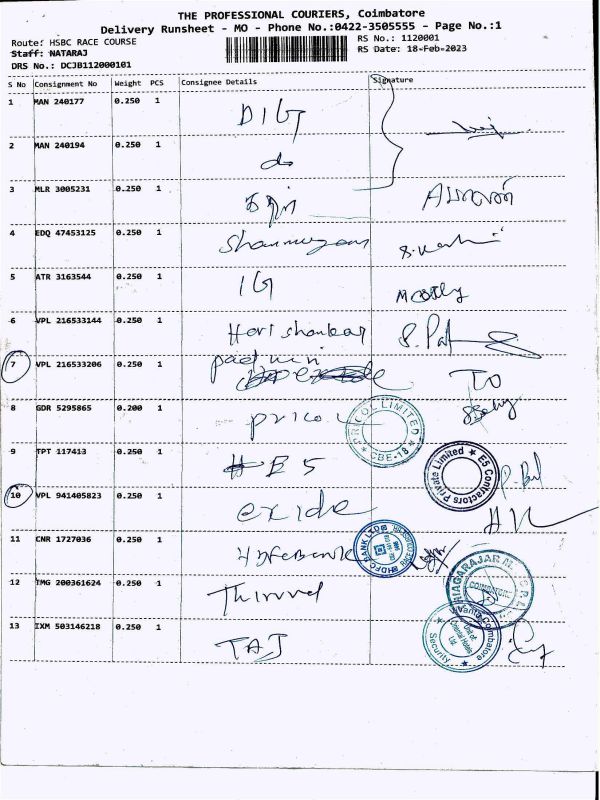 THE PROFESSIONAL COURIERS, Coimbatore
Delivery Runsheet - MO - Phone No.:0422-3505555 - Page No.:1
Route: HSBC RACE COURSE
RS No.: 1120001
Staff: NATARAJ
RS Date: 18-Feb-2023
DRS No.: DCJB112000101
S No Consignment No Weight PCS Consignee Details Signature
1 MAN 240177 0.250 1 DIG
2 MAN 240194 0.250 1 do
3 MLR 3005231 0.250 1
4 EDQ 47453125 0.250 1 Shanmugam
5 ATR 3163544 0.250 1 IG
6 VPL 216533144 0.250 1 Hari shankar
7 VPL 216533206 0.250 1
8 GDR 5295865 0.200 1 pricol
PRICOL LIMITED CBE-18
9 TPT 117413 0.250 1 E5
E5 Contractors Private Limited
10 VPL 941405823 0.250 1 exide
11 CNR 1727036 0.250 1
HDFC BANK LTD
12 TMG 200361624 0.250 1
COIMBATORE
13 IXM 503146218 0.250 1 TAJ
Vivanta Coimbatore
Unit of Oriental Hotels Ltd
Security